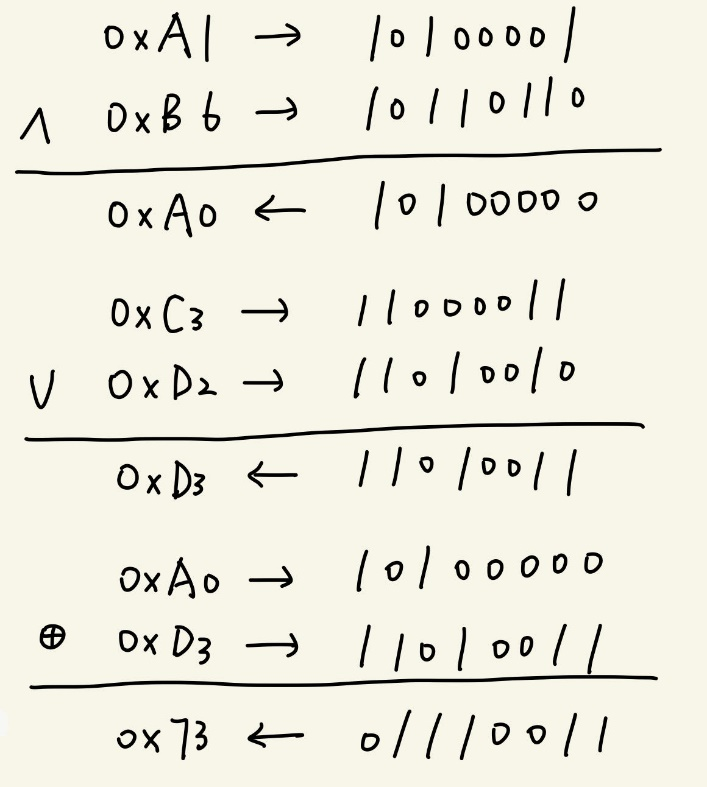 0xA1 → 10100001
∧ 0xB6 → 10110110
0xA0 ← 10100000
0xC3 → 11000011
∨ 0xD2 → 11010010
0xD3 ← 11010011
0xA0 → 10100000
⊕ 0xD3 → 11010011
0x73 ← 01110011